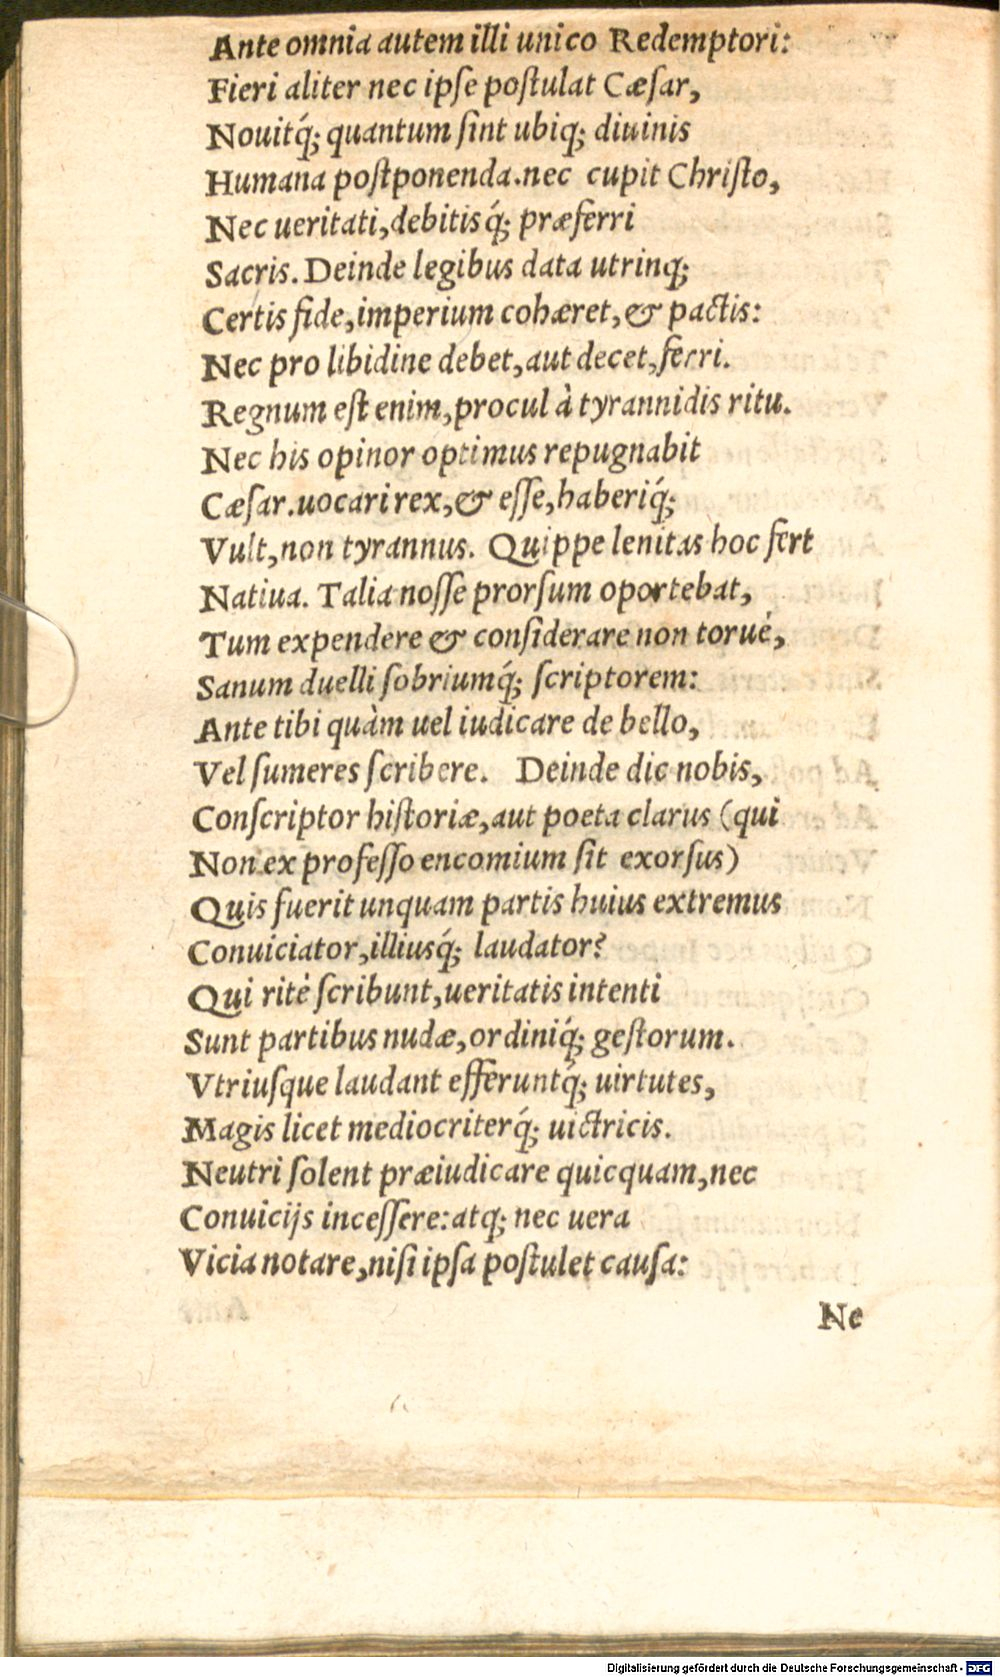 Ante omnia autem illi unico Redemptori:
Fieri aliter nec ipſe poſtulat Cæſar,
Nouitq́; quantum ſint ubiq; diuinis
Humana poſtponenda.nec cupit Chriſto,
Nec ueritati,debitisq́; præferri
Sacris. Deinde legibus data utrinq;
Certis fide,imperium cohæret,& pactis:
Nec pro libidine debet,aut decet,ferri.
Regnum eſt enim,procul à tyrannidis ritu.
Nec his opinor optimus repugnabit
Cæſar.uocari rex,& eſſe,haberiq́;
Vult,non tyrannus. Quippe lenitas hoc fert
Natiua. Talia noſſe prorſum oportebat,
Tum expendere & conſiderare non toruè,
Sanum duelli ſobriumq́; ſcriptorem:
Ante tibi quàm uel iudicare de bello,
Vel ſumeres ſcribere. Deinde dic nobis,
Conſcriptor hiſtoriæ,aut poeta clarus (qui
Non ex profeſſo encomium ſit exorſus)
Quis fuerit unquam partis huius extremus
Conuiciator,illiusq́; laudator?
Qui ritè ſcribunt,ueritatis intenti
Sunt partibus nudæ,ordiniq́; geſtorum.
Vtriuſque laudant efferuntq́; uirtutes,
Magis licet mediocriterq́; uictricis.
Neutri ſolent præiudicare quicquam,nec
Conuicijs inceſſere:atq; nec uera
Vicia notare,niſi ipſa poſtulet cauſa:
Ne
Digitalisierung gefördert durch die Deutsche Forschungsgemeinschaft - DFG